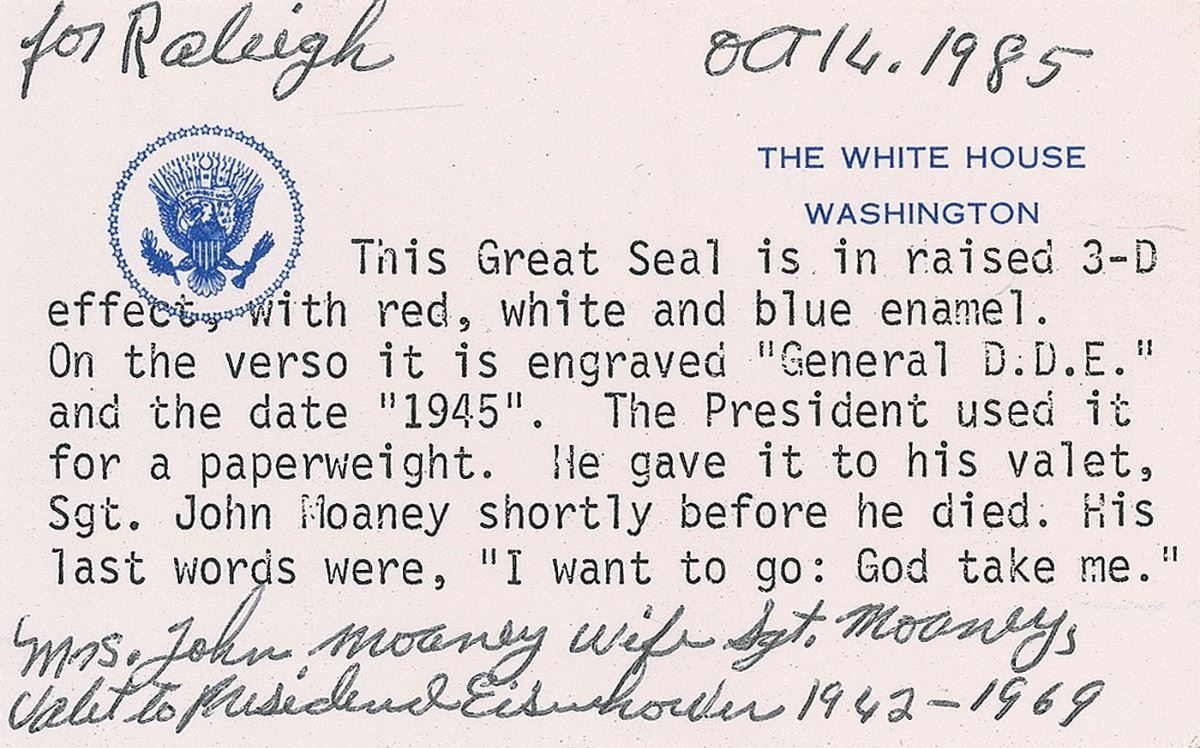 for Raleigh
Oct 14. 1985
THE WHITE HOUSE
WASHINGTON
This Great Seal is in raised 3-D
effect, with red, white and blue enamel.
On the verso it is engraved "General D.D.E."
and the date "1945". The President used it
for a paperweight. He gave it to his valet,
Sgt. John Moaney shortly before he died. His
last words were, "I want to go: God take me."
Mrs. John Moaney wife Sgt. Moaney,
Valet to President Eisenhower 1942-1969